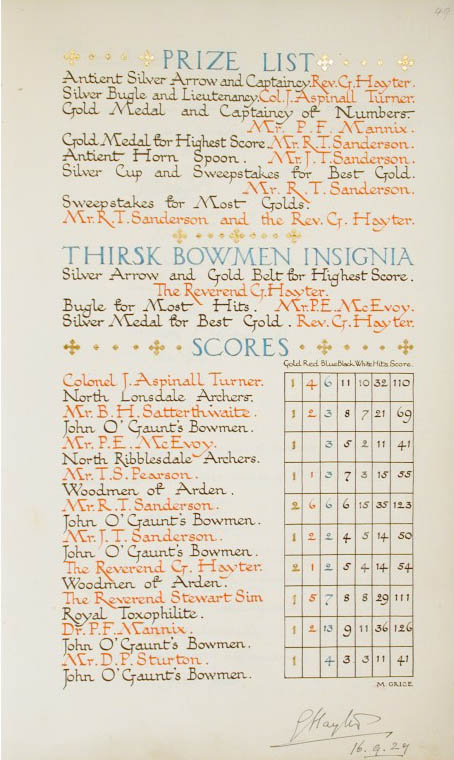 49
PRIZE LIST
Antient Silver Arrow and Captaincy. Rev. G. Hayter.
Silver Bugle and Lieutenancy. Col. J. Aspinall Turner.
Gold Medal and Captaincy of Numbers.
Mr. P. F. Mannix.
Gold Medal for Highest Score. Mr. R. T. Sanderson.
Antient Horn Spoon. Mr. J. T. Sanderson.
Silver Cup and Sweepstakes for Best Gold.
Mr. R. T. Sanderson.
Sweepstakes for Most Golds.
Mr. R. T. Sanderson and the Rev. G. Hayter.
THIRSK BOWMEN INSIGNIA
Silver Arrow and Gold Belt for Highest Score.
The Reverend G. Hayter.
Bugle for Most Hits. Mr. P. E. McEvoy.
Silver Medal for Best Gold. Rev. G. Hayter.
SCORES
Gold Red Blue Black White Hits Score.
Colonel J. Aspinall Turner. 1 4 6 11 10 32 110
North Lonsdale Archers.
Mr. B. H. Satterthwaite. 1 2 3 8 7 21 69
John O' Gaunt's Bowmen.
Mr. P. E. McEvoy. 1 3 5 2 11 41
North Ribblesdale Archers.
Mr. T. S. Pearson. 1 1 3 7 3 15 55
Woodmen of Arden.
Mr. R. T. Sanderson. 2 6 6 6 15 35 123
John O' Gaunt's Bowmen.
Mr. J. T. Sanderson. 1 2 2 4 5 14 50
John O' Gaunt's Bowmen.
The Reverend G. Hayter. 2 1 2 5 4 14 54
Woodmen of Arden.
The Reverend Stewart Sim 1 5 7 8 8 29 111
Royal Toxophilite.
Dr. P. F. Mannix. 1 2 13 9 11 36 126
John O' Gaunt's Bowmen.
Mr. D. P. Sturton. 1 4 3 3 11 41
John O' Gaunt's Bowmen.
M. GRICE
G Hayter
16.9.29